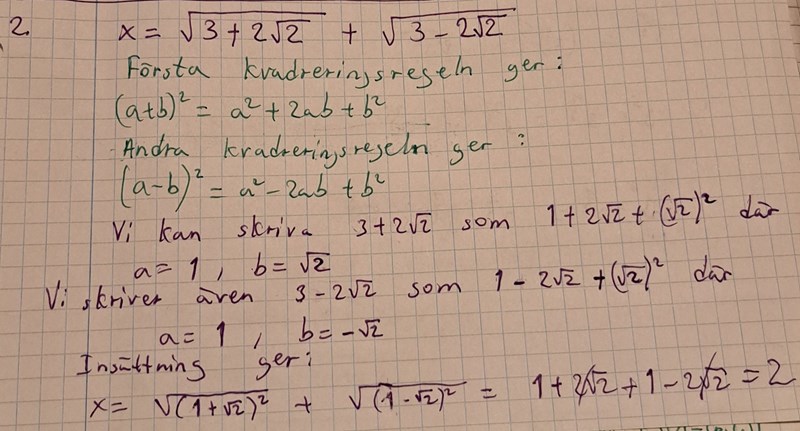 2. x = √(3 + 2√2) + √(3 - 2√2)
Första kvadreringsregeln ger:
(a+b)² = a² + 2ab + b²
Andra kvadreringsregeln ger:
(a-b)² = a² - 2ab + b²
Vi kan skriva 3+2√2 som 1 + 2√2 + (√2)² där
a = 1, b = √2
Vi skriver även 3 - 2√2 som 1 - 2√2 + (√2)² där
a = 1, b = -√2
Insättning ger:
x = √(1+√2)² + √(1-√2)² = 1 + 2√2 + 1 - 2√2 = 2